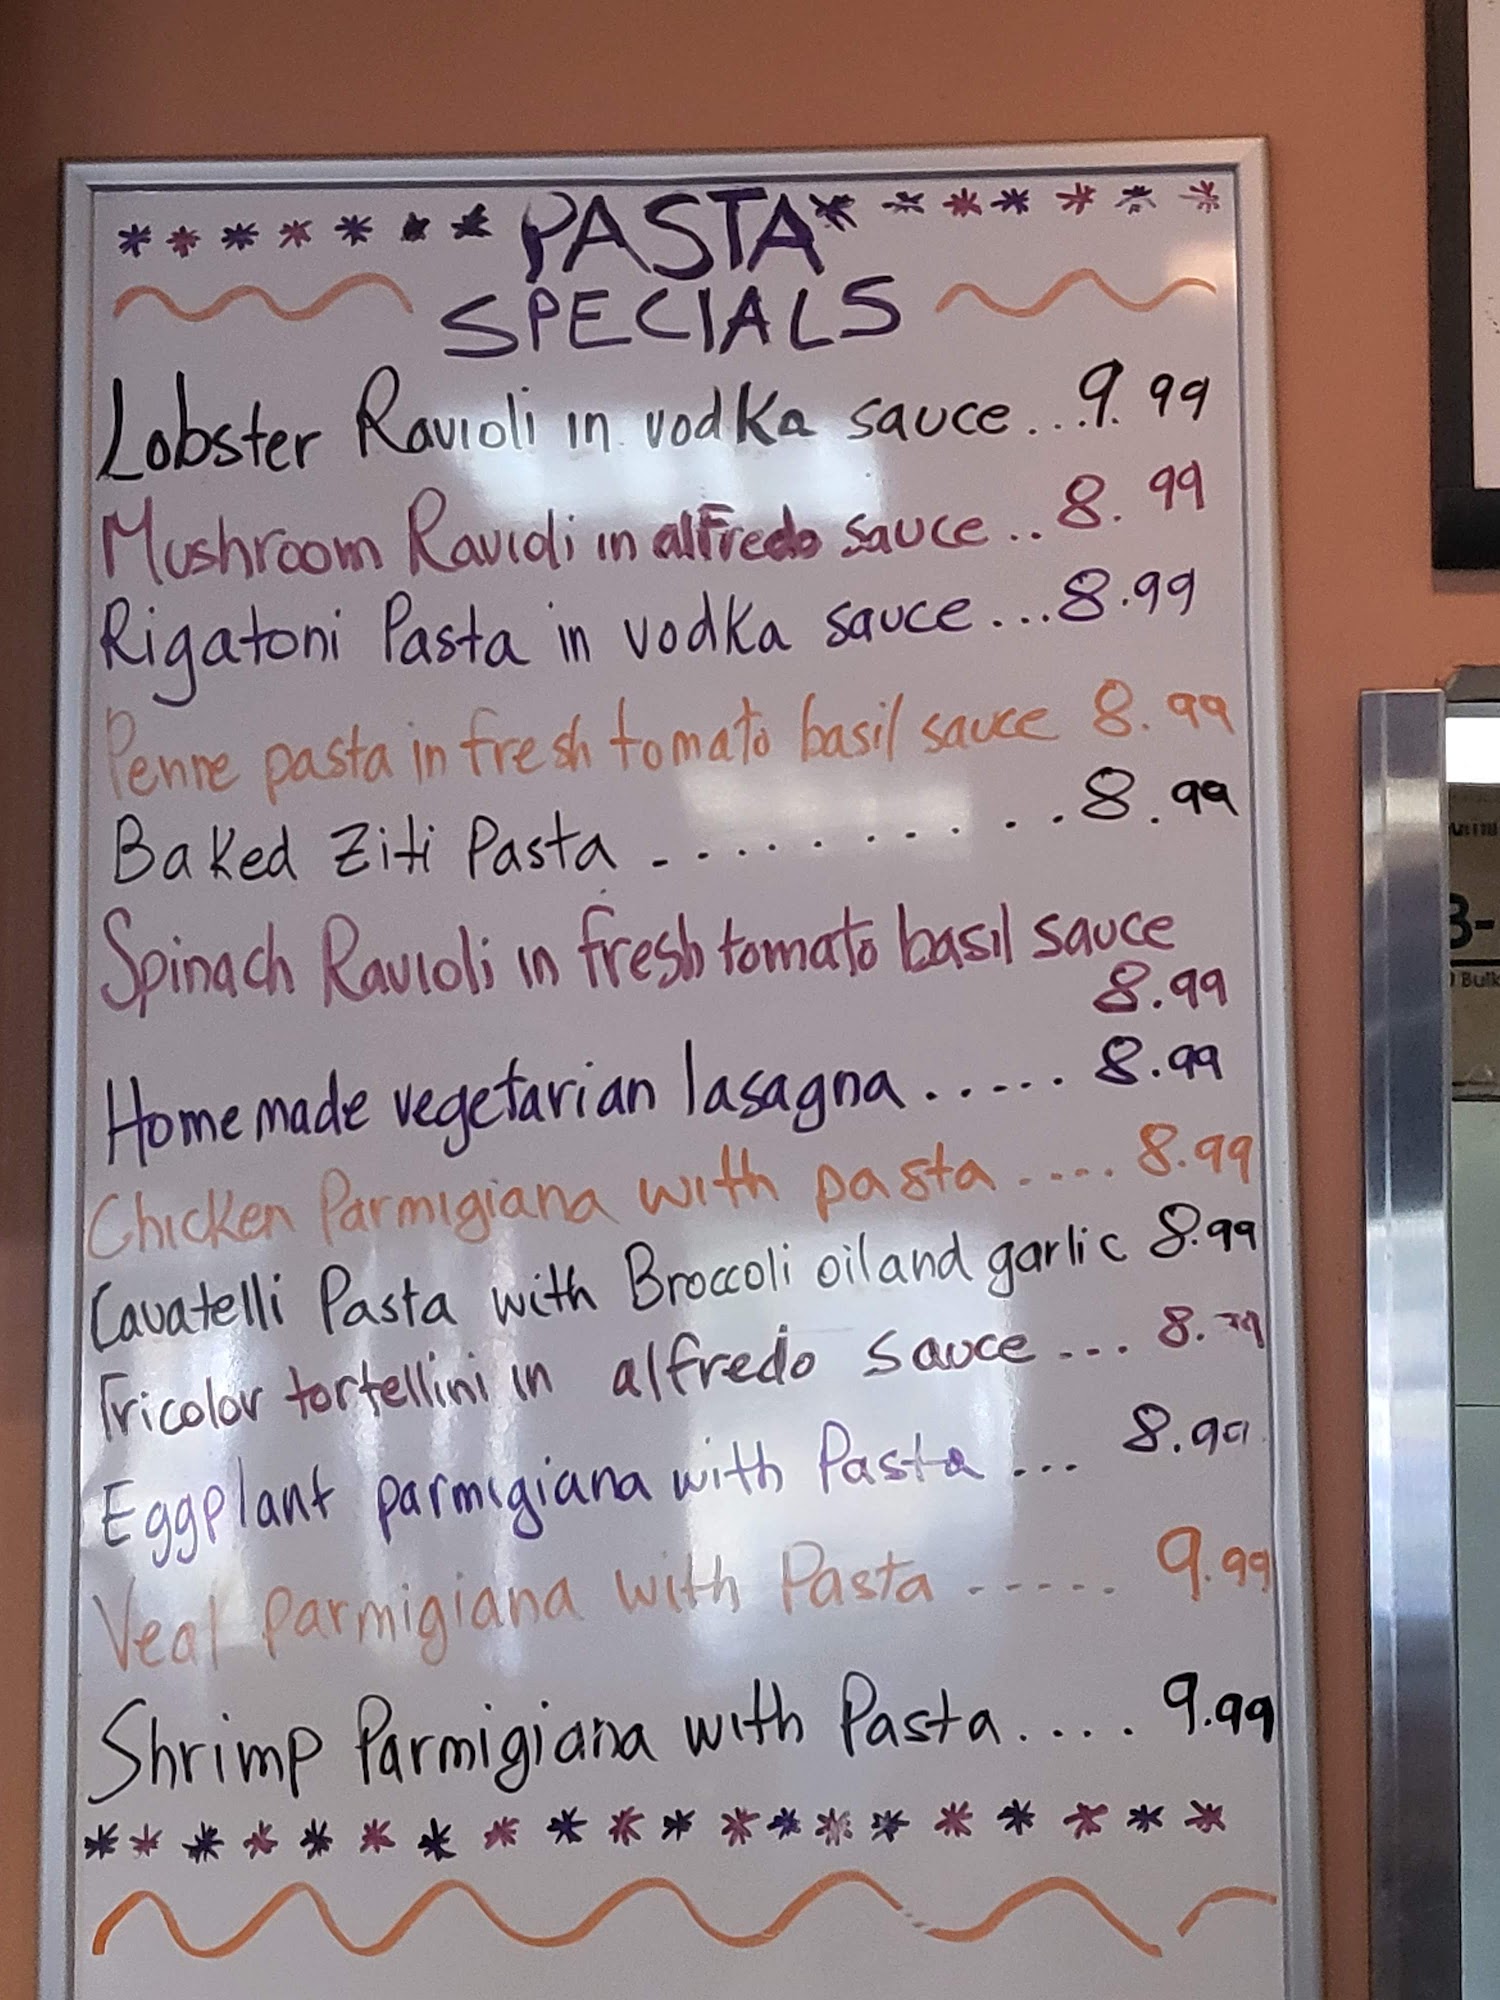 PASTA
SPECIALS
Lobster Ravioli in vodka sauce...9.99
Mushroom Ravioli in alfredo sauce..8.99
Rigatoni Pasta in vodka sauce...8.99
Penne pasta in fresh tomato basil sauce 8.99
Baked Ziti Pasta ..........8.99
Spinach Ravioli in fresh tomato basil sauce
8.99
Homemade vegetarian lasagna...... 8.99
Chicken Parmigiana with pasta .... 8.99
Cavatelli Pasta with Broccoli oil and garlic 8.99
Tricolor tortellini in alfredo sauce ... 8.99
Eggplant parmigiana with Pasta ... 8.99
Veal Parmigiana with Pasta ----- 9.99
Shrimp Parmigiana with Pasta.... 9.99
Bulk